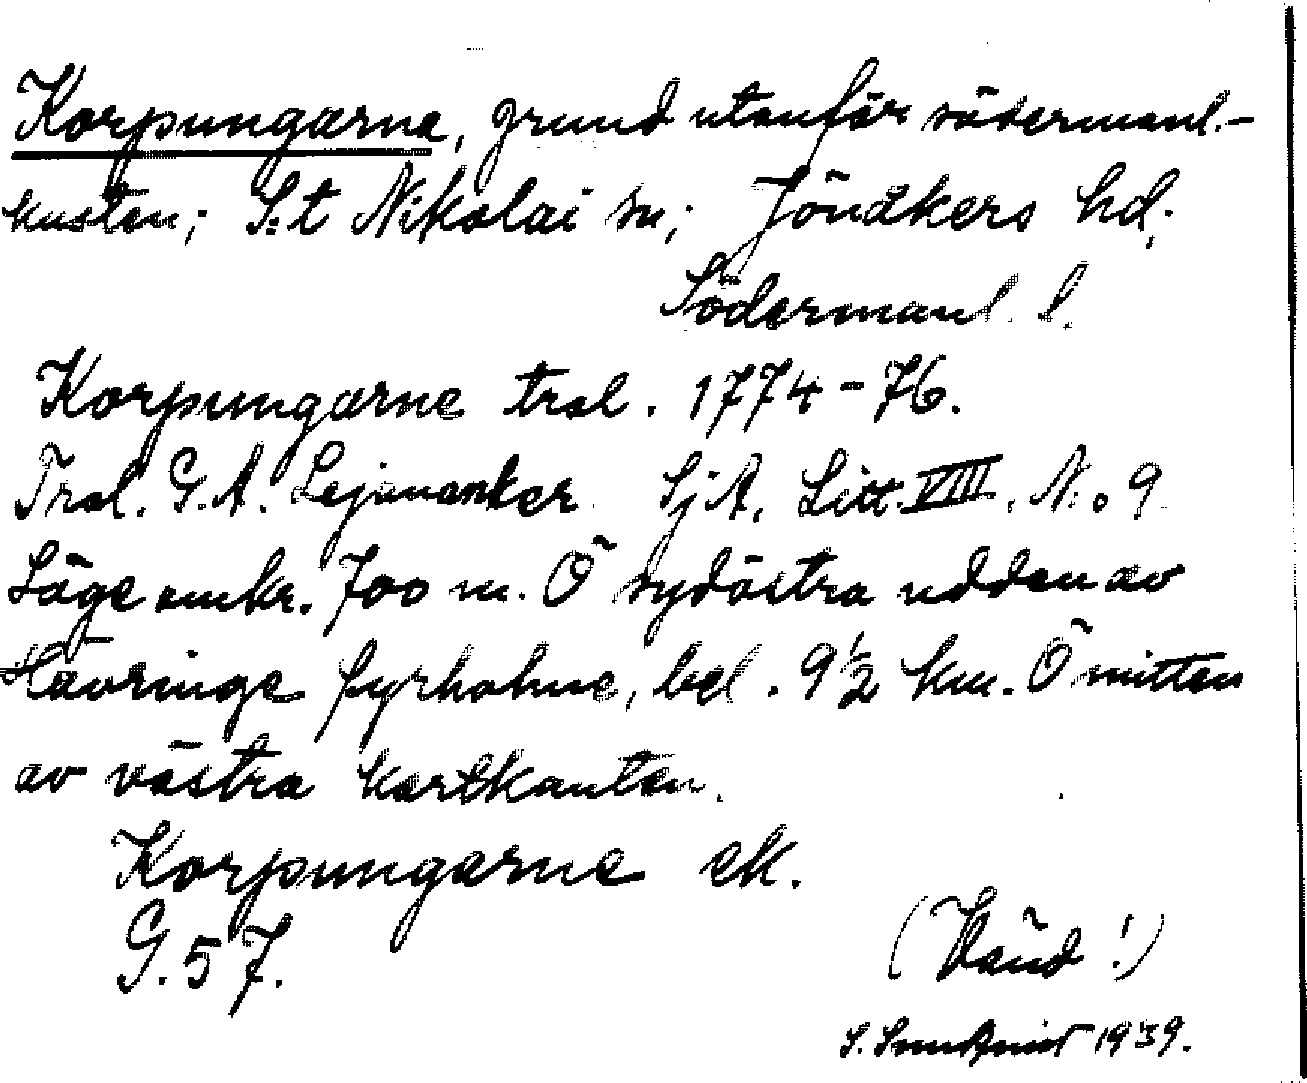 Korpungarne, grund utanför södermanl.-
kusten; S:t Nikolai sn; Jönåkers hd;
Södermanl. l.
Korpungarne tral. 1774-76.
Tral. G.A. Lejonanker SjA, Litt. VIII. N:o 9
Läge omkr. 700 m. Ö sydöstra udden av
Hävringe fyrholme, bel. 9 1/2 km. Ö mitten
av västra kartkanten.
Korpungarne ek.
G. 57.
(Vänd!)
S. 1939.